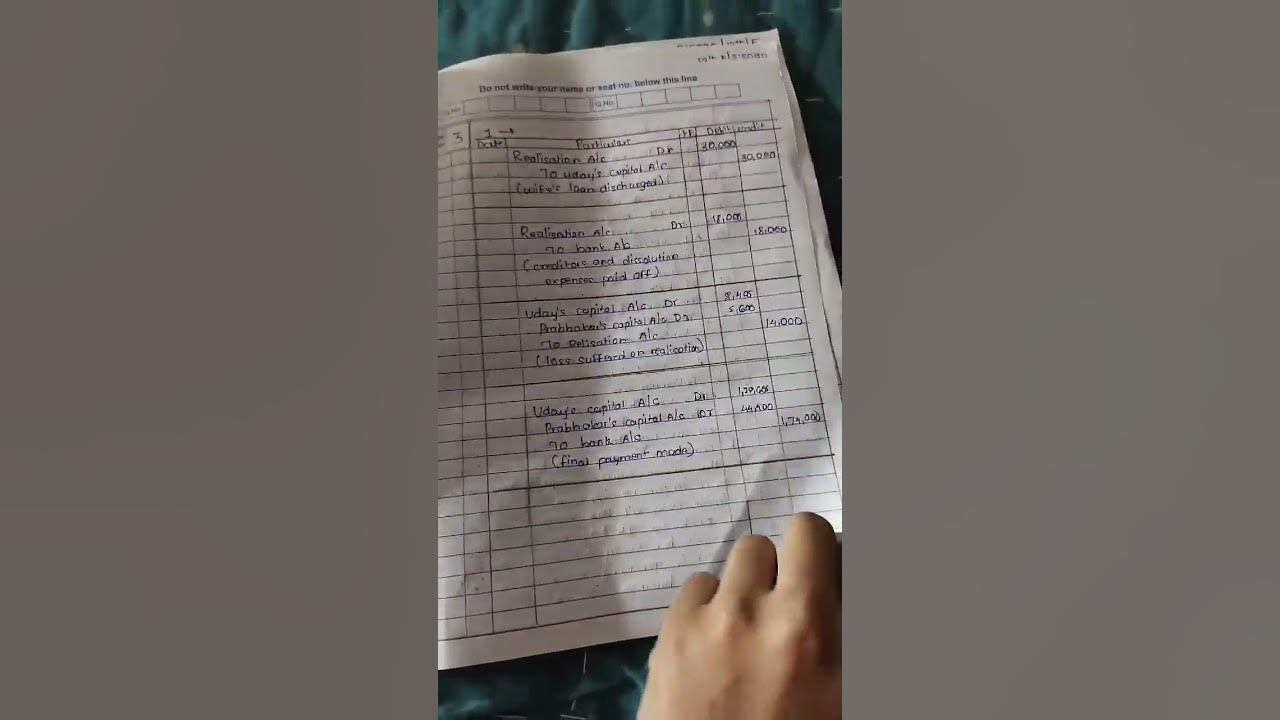 Do not write your name or seat no. below this line
Q.NO
3 1 →
Date Particulars Debit credit
Realisation A/c Dr 30,000
To uday's capital A/c 30,000
(wife's loan discharged)
Realisation A/c Dr 18,000
To bank A/c 18,000
(creditors and dissolution
expenses paid off)
Uday's capital A/c Dr 8,400
Prabhakar's capital A/c Dr 5,600
To Relisation A/c 14,000
(loss sufferd on realisation)
Uday's capital A/c Dr
Prabhakar's capital A/c Dr
To bank A/c 1,74,000
(final payment made)